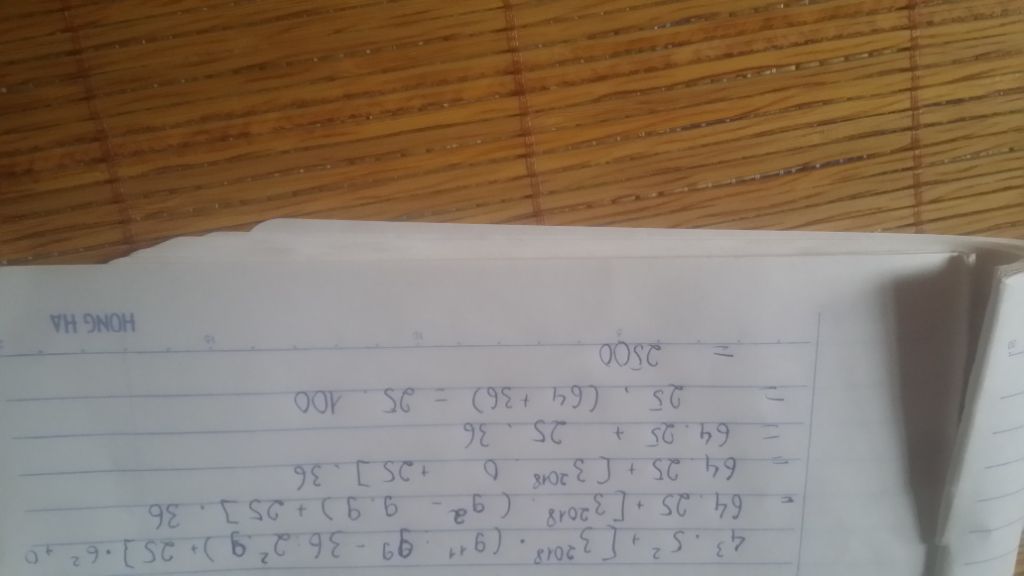 4³ . 5² + [3²⁰¹⁸ . (9¹¹ : 9⁹ - 36 . 2² . 9) + 25] . 6² + 0
= 64 . 25 + [3²⁰¹⁸ . (9² - 9 . 9) + 25] . 36
= 64 . 25 + [3²⁰¹⁸ . 0 + 25] . 36
= 64 . 25 + 25 . 36
= 25 . (64 + 36) = 25 . 100
= 2500
HONG HA